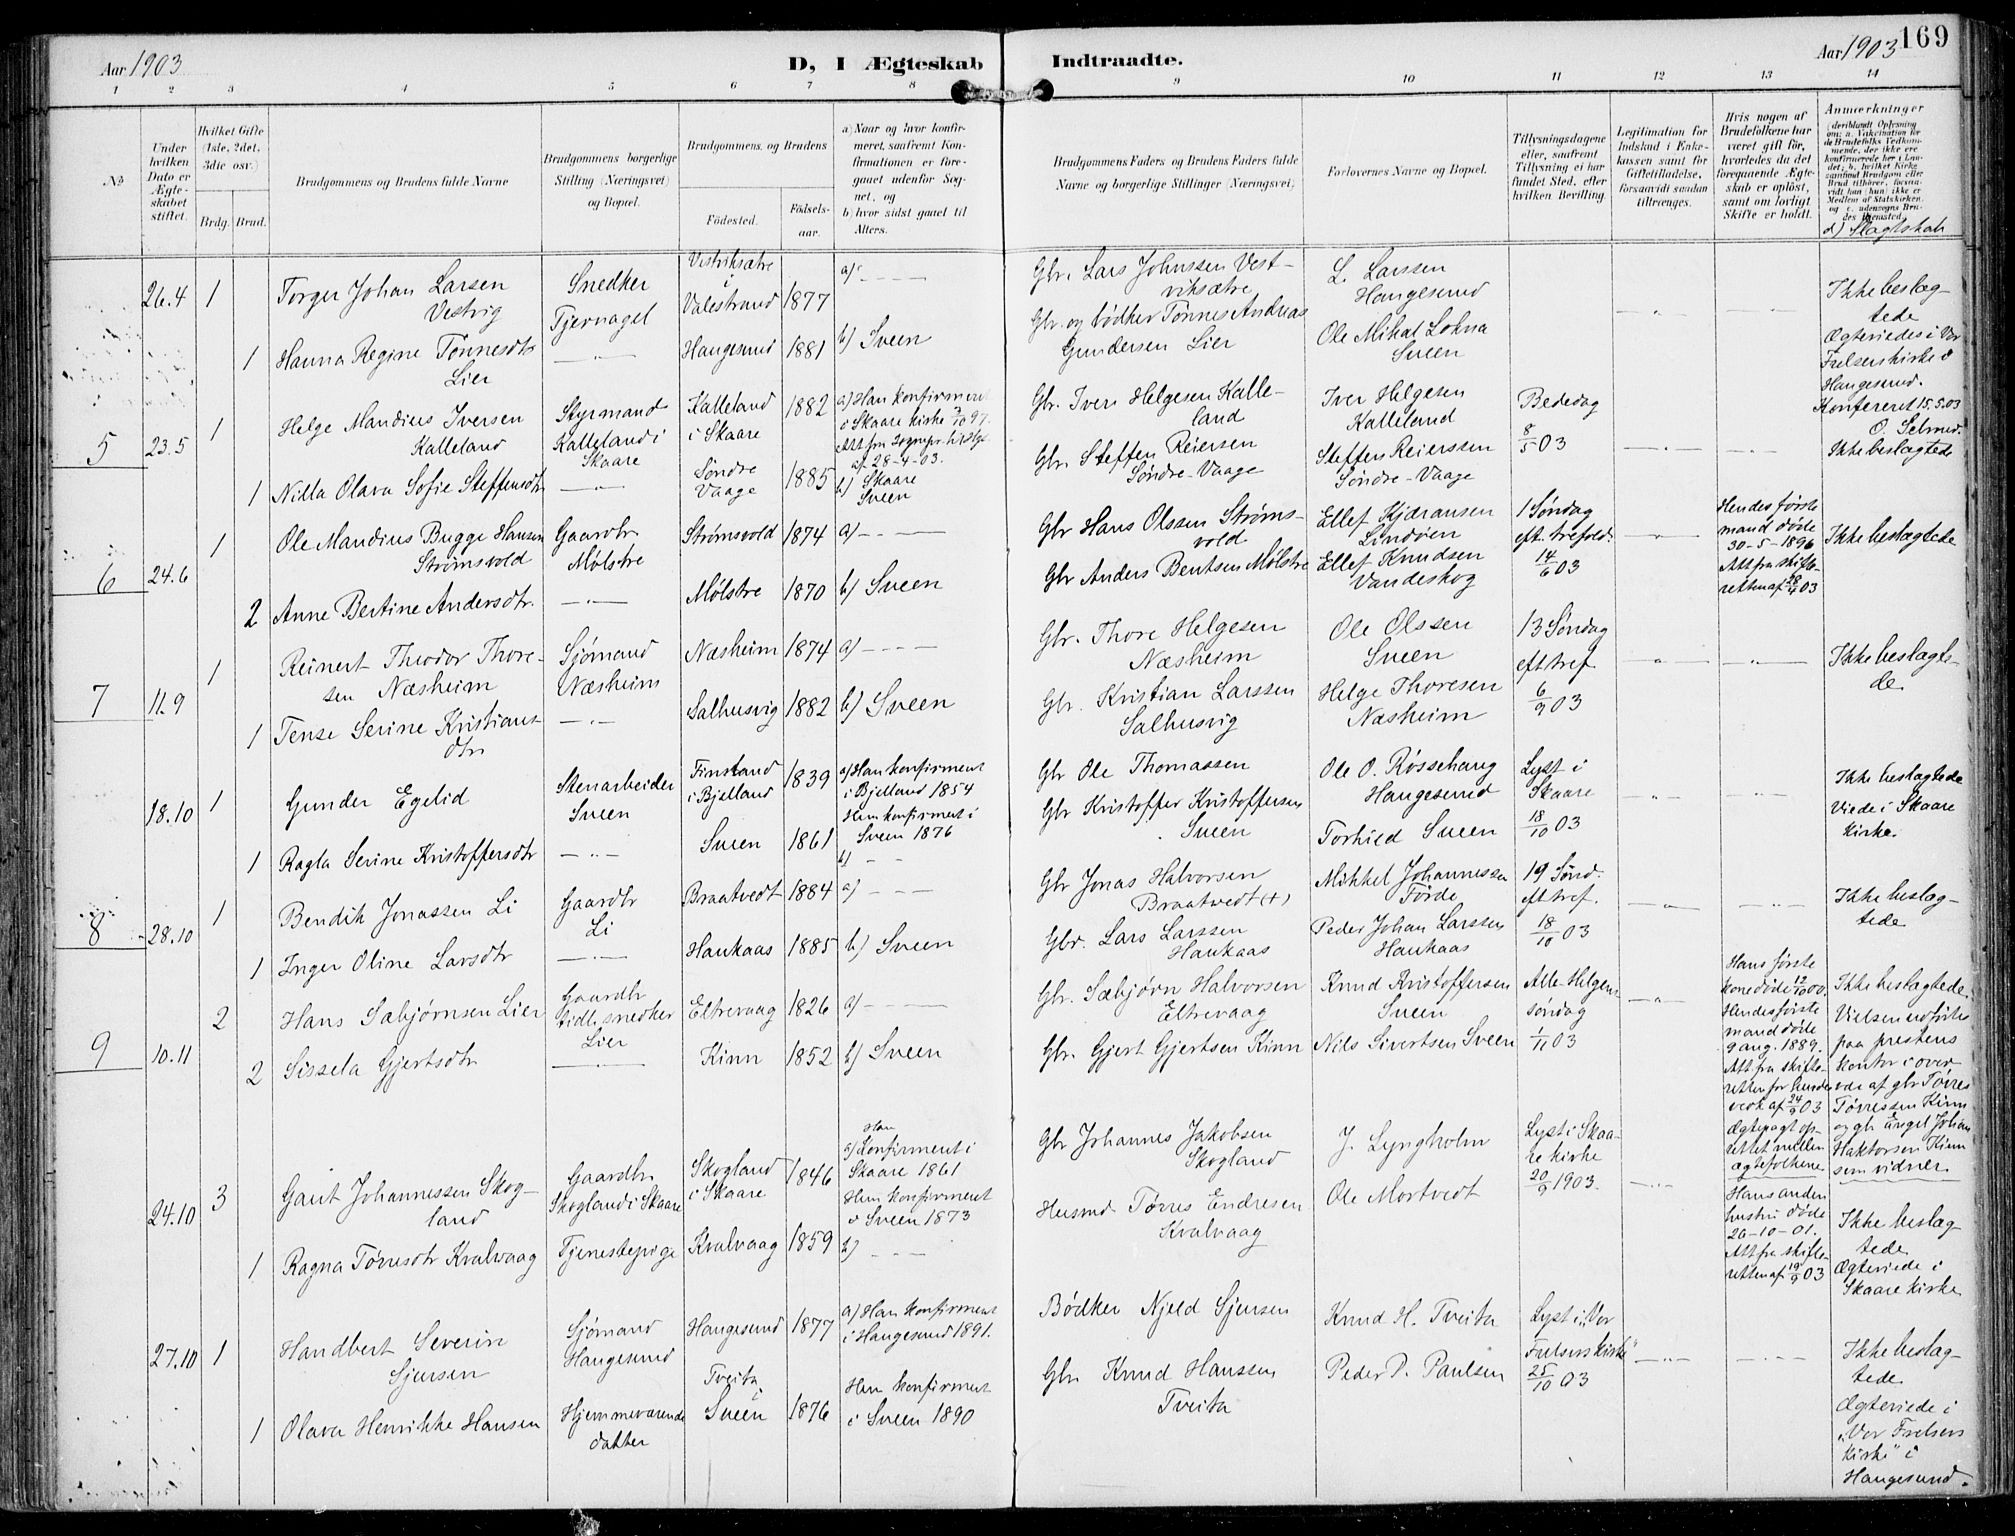 169
Aar 1903
D, I Ægteskab Indtraadte.
Aar 1903
1 2 3 4 5 6 7 8 9 10 11 12 13 14
№
Under hvilken Dato er Ægteskabet stiftet.
Hvilket Gifte (1ste, 2det, 3die osv.)
Brdg. Brud.
Brudgommens og Brudens fulde Navne
Brudgommens borgerlige Stilling (Næringsvei) og Bopæl.
Brudgommens og Brudens
Fødested.
Fødsels-aar.
a) Naar og hvor konfirmeret, saafremt Konfirmationen er foregaaet udenfor Sognet, og
b) hvor sidst gaaet til Alters.
Brudgommens Faders og Brudens Faders fulde Navne og borgerlige Stillinger (Næringsvei)
Forlovernes Navne og Bopæl.
Tillysningsdagene eller, saafremt Tillysning ei har fundet Sted, efter hvilken Bevilling.
Legitimation for Indskud i Enkekassen samt for Giftetilladelse, forsaavidt saadan tiltrænges.
Hvis nogen af Brudefolkene har været gift før, hvorledes da det foregaaende Ægteskab er opløst, samt om lovligt Skifte er holdt.
Anmærkninger
d) Slagtskab
26.4 1 Torger Johan Larsen Vestvig
Snedker Tjernagel
Vestviksætre i Valestrand 1877 a) — — —
Gbr. Lars Johnssen Vestviksætre
L. Larssen Haugesund
Ikke beslægtede
Ægteviedes i Vor Frelsers kirke i Haugesund.
1 Hanna Regine Tønnesdtr Lier
— " — Haugesund 1881 b) Sveen
Gbr. og bødker Tønnes Andreas Gundersen Lier
Ole Mikal Lokna Sveen
Konfereret 15.5.03 O. Selmer.
5 23.5 1 Helge Mandius Iversen Kalleland
Styrmand Kalleland i Skaare
Kalleland i Skaare 1882
a) Han konfirmeret i Skaare kirke 3/10 97. Att fra sognepr. hidlgt af 28-4-03.
Gbr. Iver Helgesen Kalleland
Iver Helgesen Kalleland
Bededag 8/5 03
Ikke beslægtede
1 Nilla Olava Sofie Steffensdtr
— " — Søndre Vaage 1885 b) Skaare Sveen
Gbr. Steffen Reiersen Søndre-Vaage
Steffen Reierssen Søndre-Vaage
6 24.6 1 Ole Mandius Bugge Hansen Strømsvold
Gaardbr Mølstre
Strømsvold 1874 a) — — —
Gbr Hans Olssen Strømsvold
Ellef Kjæransen Lindøen
1 Søndag eft. trefold. 14/6 03
Hendes første mand døde 30-5-1896 Att fra skifteretten af 28/4 03
Ikke beslægtede
2 Anne Bertine Andersdtr.
— " — Mølstre 1870 b) Sveen
Gbr Anders Bentsen Mølstre
Ellef Knudsen Vandeskog
7 11.9 1 Reinert Theodor Thoresen Næsheim
Sjømand Næsheim
Næsheim 1874 a) — — —
Gbr. Thore Helgesen Næsheim
Ole Olssen Sveen
13 Søndag eft tref. 6/9 03
Ikke beslægtede
1 Tense Serine Kristiansdtr
— " — Salhusvig 1882 b) Sveen
Gbr. Kristian Larssen Salhusvig
Helge Thoresen Næsheim
18.10 1 Gunder Egelid
Stenarbeider Sveen
Finstand i Bjelland 1839
a) Han konfirmeret i Bjelland 1854
Gbr Ole Thomassen
Ole O. Røssehaug Haugesund
Lyst i Skaare 18/10 03
Ikke beslægtede Viede i Skaare kirke.
1 Ragla Serine Kristoffersdtr
— " — Sveen 1861 Hun konfirmeret i Sveen 1876 b) — —
Gbr Kristoffer Kristoffersen Sveen
Torhild Sveen
8 28.10 1 Bendik Jonassen Li
Gaardbr Li
Braatvedt 1884 a) — — —
Gbr Jonas Halvorsen Braatvedt (+)
Mikkel Johannessen Førde
19 Sønd. eft tref. 18/10 03
Ikke beslægtede
1 Inger Oline Larsdtr
— " — Haukaas 1885 b) Sveen
Gbr. Lars Larssen Haukaas
Peder Johan Larssen Haukaas
9 10.11 2 Hans Sabjørnsen Lier
Gaardbr tidl. snedker Lier
Eltrevaag 1826 a) — — —
Gbr. Sæbjørn Halvorsen Eltrevaag
Knud Kristoffersen Sveen
Alle-Helgens Søndag 1/11 03
Hans første kone døde 12/10 00. Hendes første mand døde 9 aug. 1889. Att fra skifteretten for hendes verk af 24/9 03 Ægtepagt oprettet mellem ægtefolkene
Ikke beslægtede. Vielsen udførtes paa prestens kontor i overvær af gbr Tørres Tørressen Kinn og gbr Engel Johan Haktorsen Kinn som vidner.
2 Sissela Gjertsdtr
Kinn 1852 b) Sveen
Gbr. Gjert Gjertsen Kinn
Nils Sivertsen Sveen
24.10 3 Gaut Johannessen Skogland
Gaardbr Skogland i Skaare
Skogland i Skaare 1846
a) Han Konfirmeret i Skaare 1861
Gbr Johannes Jakobsen Skogland
J. Lyngholm
Lyst i Skaare kirke 20/9 1903.
Hans anden hustru døde 26-10-01. Att fra skifteretten af 19/9 03
Ikke beslægtede Ægteviede i Skaare kirke
1 Ragna Tørresdtr Kvalvaag
Tjenestepige Kvalvaag 1859
Hun konfirmeret i Sveen 1873 b) — — —
Husmd Tørres Endresen Kvalvaag
Ole Mortvedt
27.10 1 Handbert Severin Sjursen
Sjømand Haugesund
Haugesund 1877
a) Han konfirmeret i Haugesund 1891.
Bødker Njeld Sjursen
Knud H. Tveita
Lyst i „Vor Frelsers kirke" 25/10 03
Ikke beslægtede Ægteviede i „Vor Frelsers kirke" i Haugesund.
1 Olava Henrikke Hansen
Hjemmeværende datter
Tveita i Sveen 1876
Hun konfirmeret i Sveen 1890
Gbr Knud Hanssen Tveita
Peder P. Paulsen